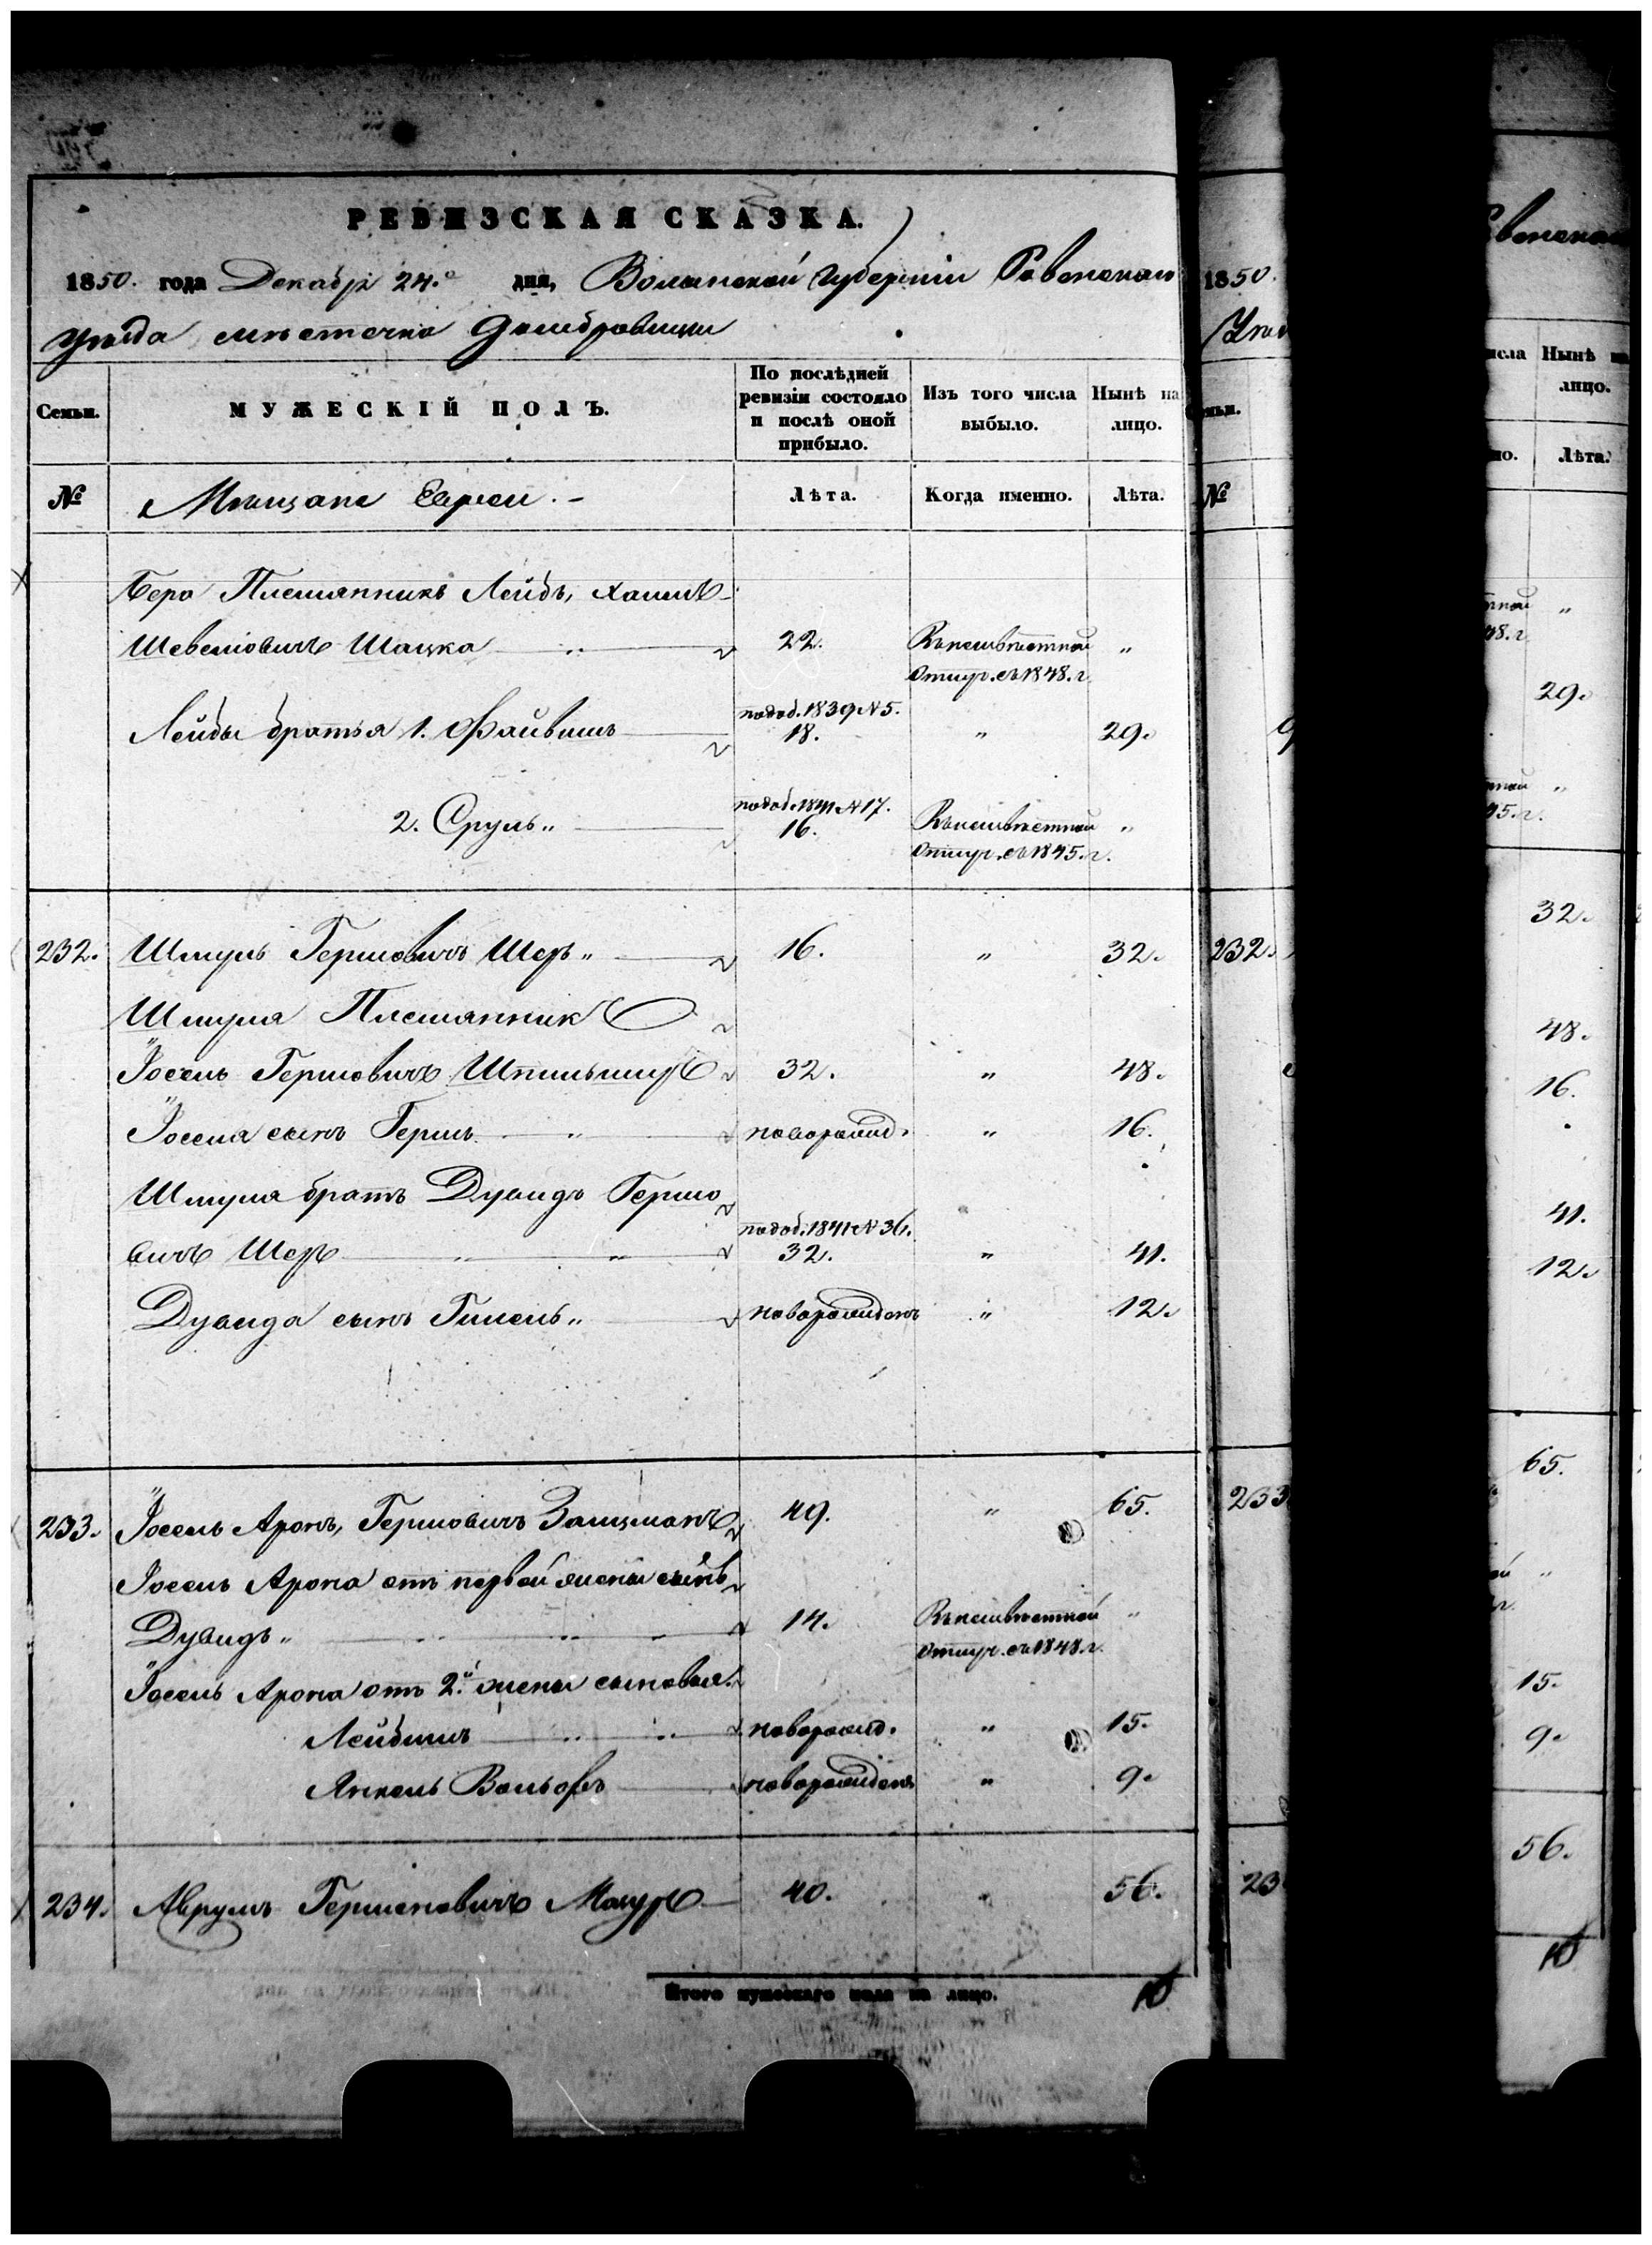 РЕВИЗСКАЯ СКАЗКА.
1850. года Декабря 24.го дня, Волынской Губерніи Ровенскаго
Уѣзда мѣстечка Домбровицы
Семьи. МУЖЕСКІЙ ПОЛЪ. По послѣдней ревизіи состояло и послѣ оной прибыло. Изъ того числа выбыло. Нынѣ на лицо.
№ Мѣщане Евреи. Лѣта. Когда именно. Лѣта.
Бера Племянникъ Лейбъ, Хаимъ
Шевелiовичъ Шацка 22. Въ неизвѣстной „
отлуч. съ 1848. г.
Лейбы братья 1. Файвишъ по доб. 1839 № 5. 18. „ 29.
2. Сруль „ по доб. 1841 № 17. 16. Въ неизвѣстной „
отлуч. съ 1845. г.
232. Шмуль Гершовичъ Шеръ „ 16. „ 32.
Шмуля Племянникъ
Іосель Гершовичъ Шпильширъ 32. „ 48.
Іоселя сынъ Гершъ „ новорожд. „ 16.
Шмуля братъ Дувидъ Гершо
вичъ Шеръ „ „ по доб. 1841 № 36. 32. „ 41.
Дувида сынъ Гилель „ новорожденъ „ 12.
233. Іосель Аронъ, Гершовичъ Залцманъ 49. „ 65.
Іосель Арона отъ первой жены сынъ
Дувидъ „ 14. Въ неизвѣстной „
отлуч. съ 1848. г.
Іосель Арона отъ 2.й жены сыновья
Лейбишъ новорожд. „ 15.
Янкель Вольфъ новорожденъ „ 9.
234. Аврумъ Гершеновичъ Мазуръ 40. „ 56.
Итого мужескаго пола на лицо. 10
1850.
Уѣз
№
232.
233
23
Нынѣ на
лицо.
Лѣта.
„
48. г.
29.
„
45. г.
32.
48.
16.
41.
12.
65.
„
15.
9.
56.
10